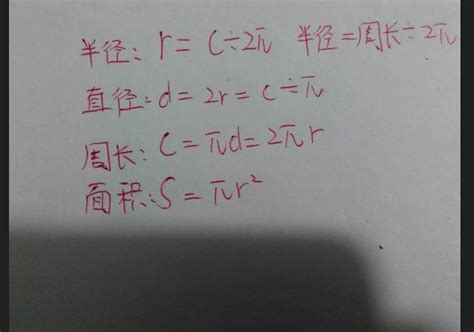 半径: r = C÷2π 半径=周长÷2π
直径: d = 2r = C÷π
周长: C = πd = 2πr
面积: S = πr²